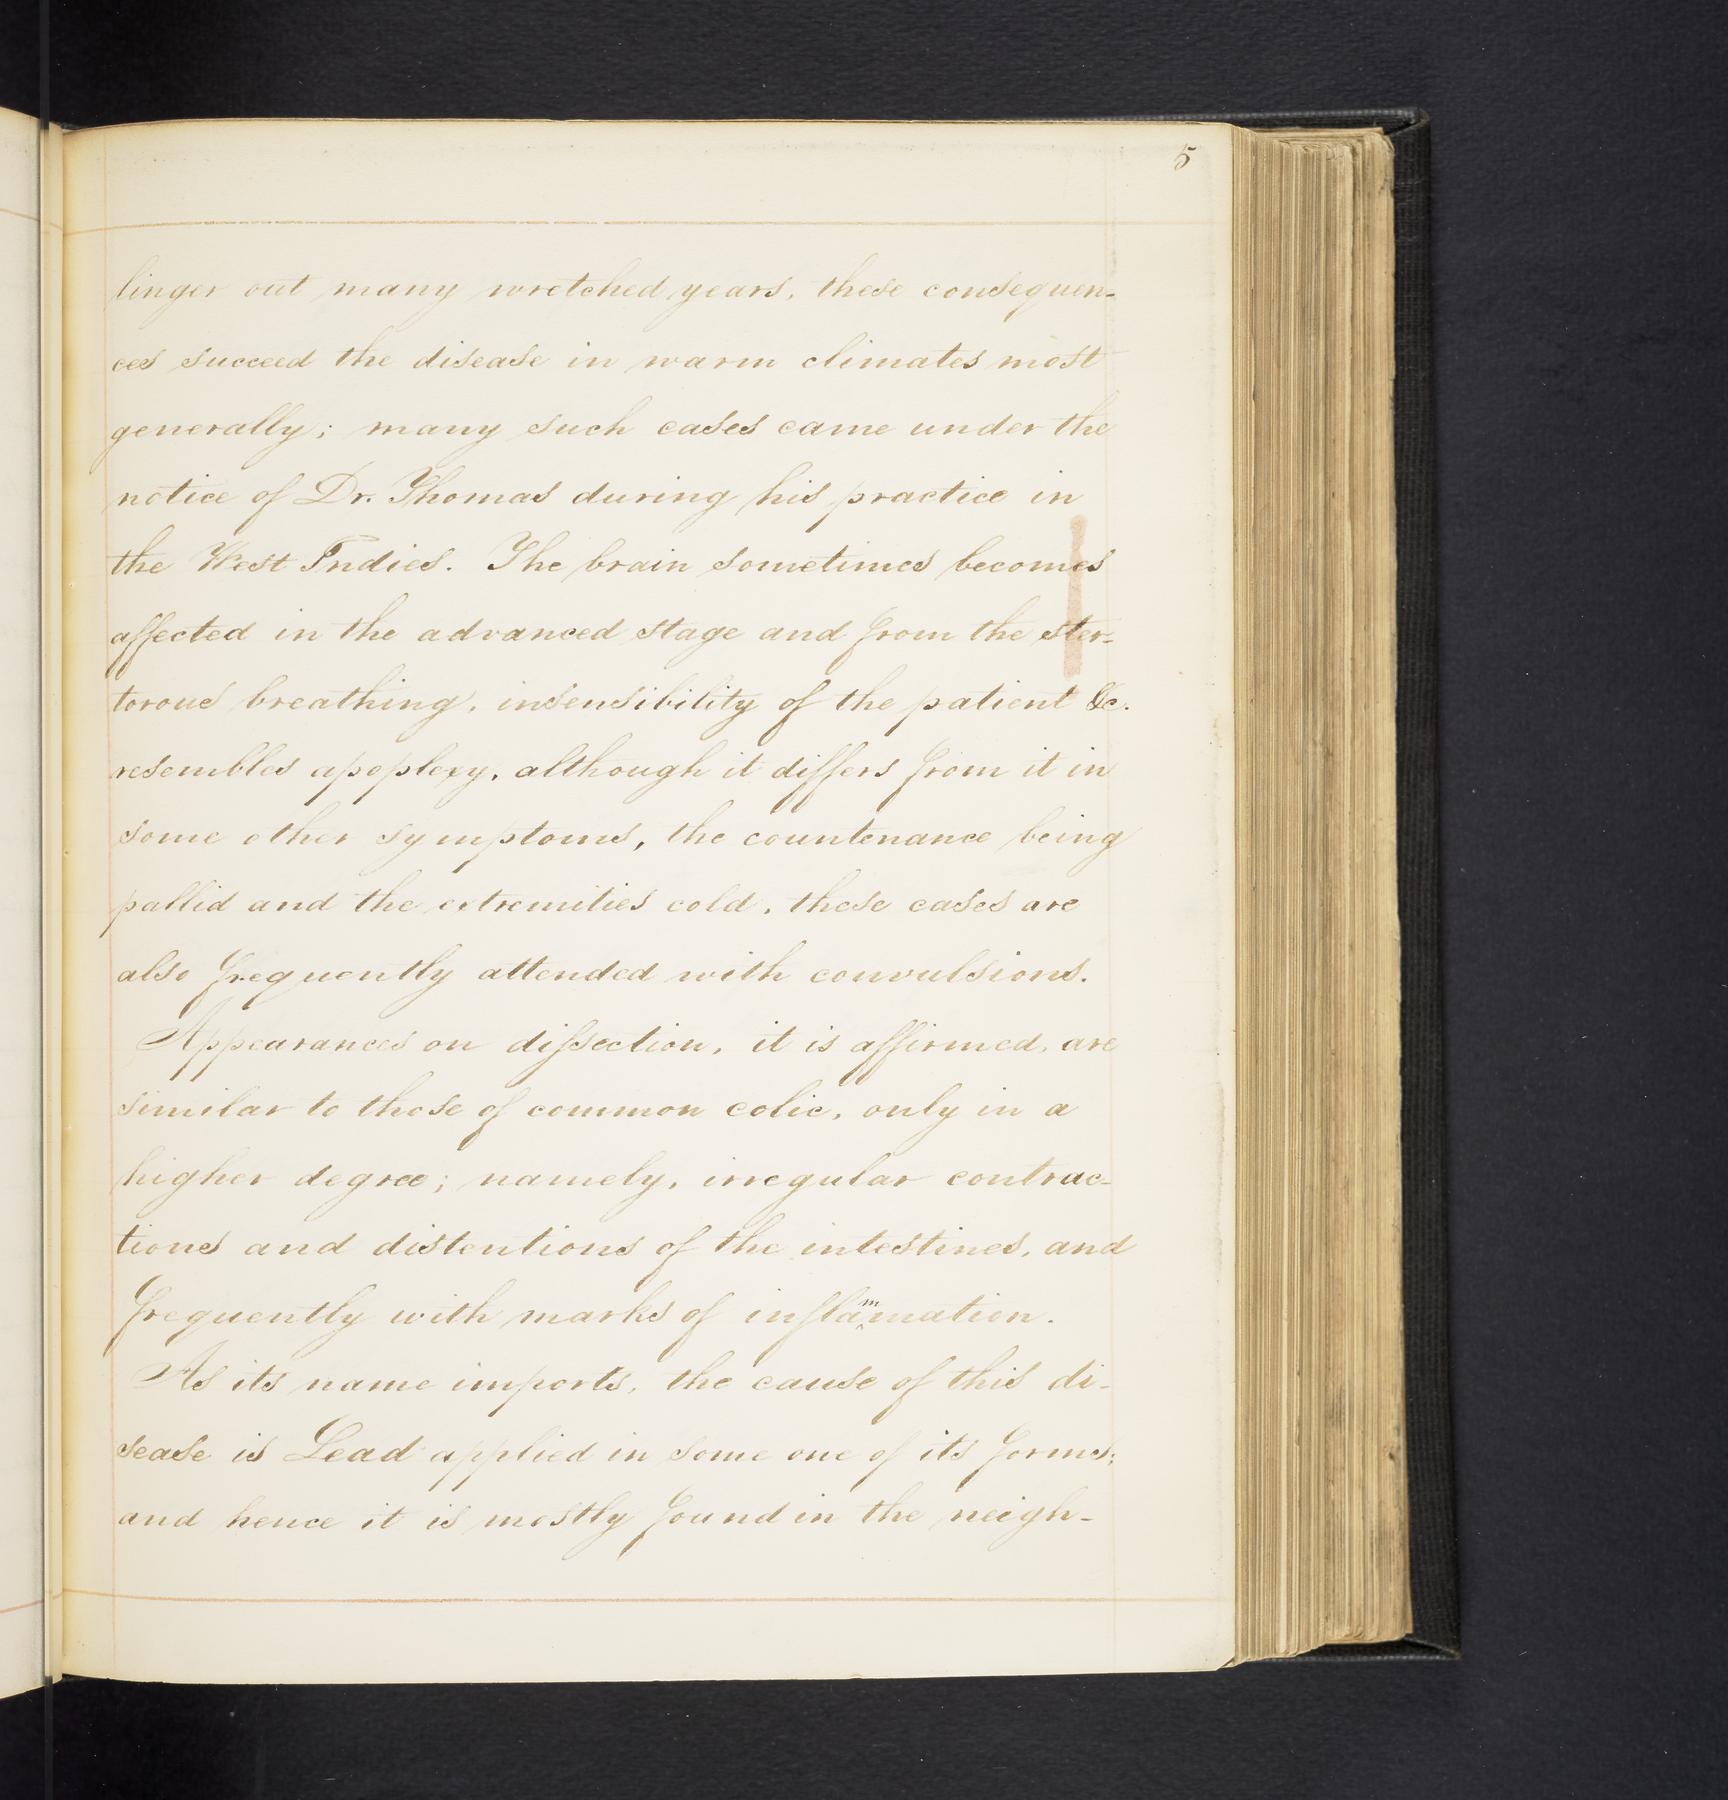 5
linger out many wretched years, these consequen-
ces succeed the disease in warm climates most
generally; many such cases came under the
notice of Dr. Thomas during his practice in
the West Indies. The brain sometimes becomes
affected in the advanced stage and from the ster-
torous breathing, insensibility of the patient &c.
resembles apoplexy, although it differs from it in
some other symptoms, the countenance being
pallid and the extremities cold, these cases are
also frequently attended with convulsions.
Appearances on diſsection, it is affirmed, are
similar to those of common colic, only in a
higher degree; namely, irregular contrac-
tions and distentions of the intestines, and
frequently with marks of inflammation.
As its name imports, the cause of this di-
sease is Lead applied in some one of its forms;
and hence it is mostly found in the neigh-